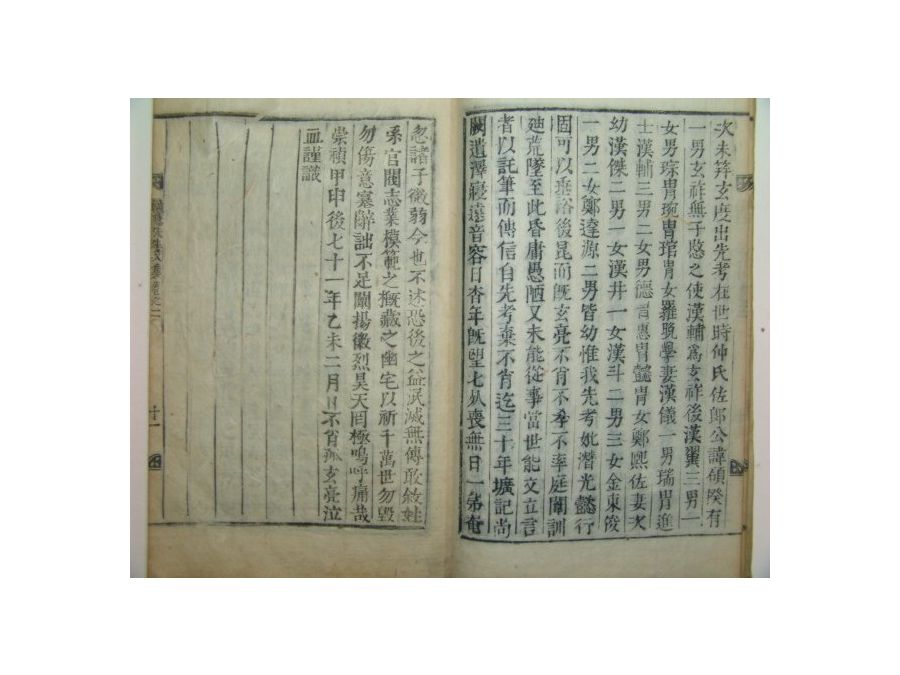 次未笄玄度出先考在世時仲氏佐郞公諱碩揆有
一男玄祚無子愍之使漢輔爲玄祚後漢翼三男一
女男琮胄琬胄琯胄女羅晩擧妻漢儀一男瑞胄進
士漢輔三男二女男德胄惠胄懿胄女鄭熙佐妻次
幼漢傑二男一女漢井一女漢斗二男三女金東俊
一男二女鄭達源二男皆幼惟我先考妣潛光懿行
固可以垂裕後昆而旣玄亮不肖不季不率庭闈訓
廸荒墜至此昏庸愚陋又未能從事當世能文立言
者以託筆而傳信自先考棄不肖迄三十年壙記尙
闕遺澤寢遠音容日杳年旣望七死喪無日一第奄
忽諸子微弱今也不述恐後之益泯滅無傳敢敘姓
系官閥志業模範之槪藏之幽宅以祈千萬世勿毁
勿傷意寔辭詘不足闡揚徽烈昊天罔極嗚呼痛哉
崇禎甲申後七十一年乙未二月 日不肖孤玄亮泣
血謹識
十一